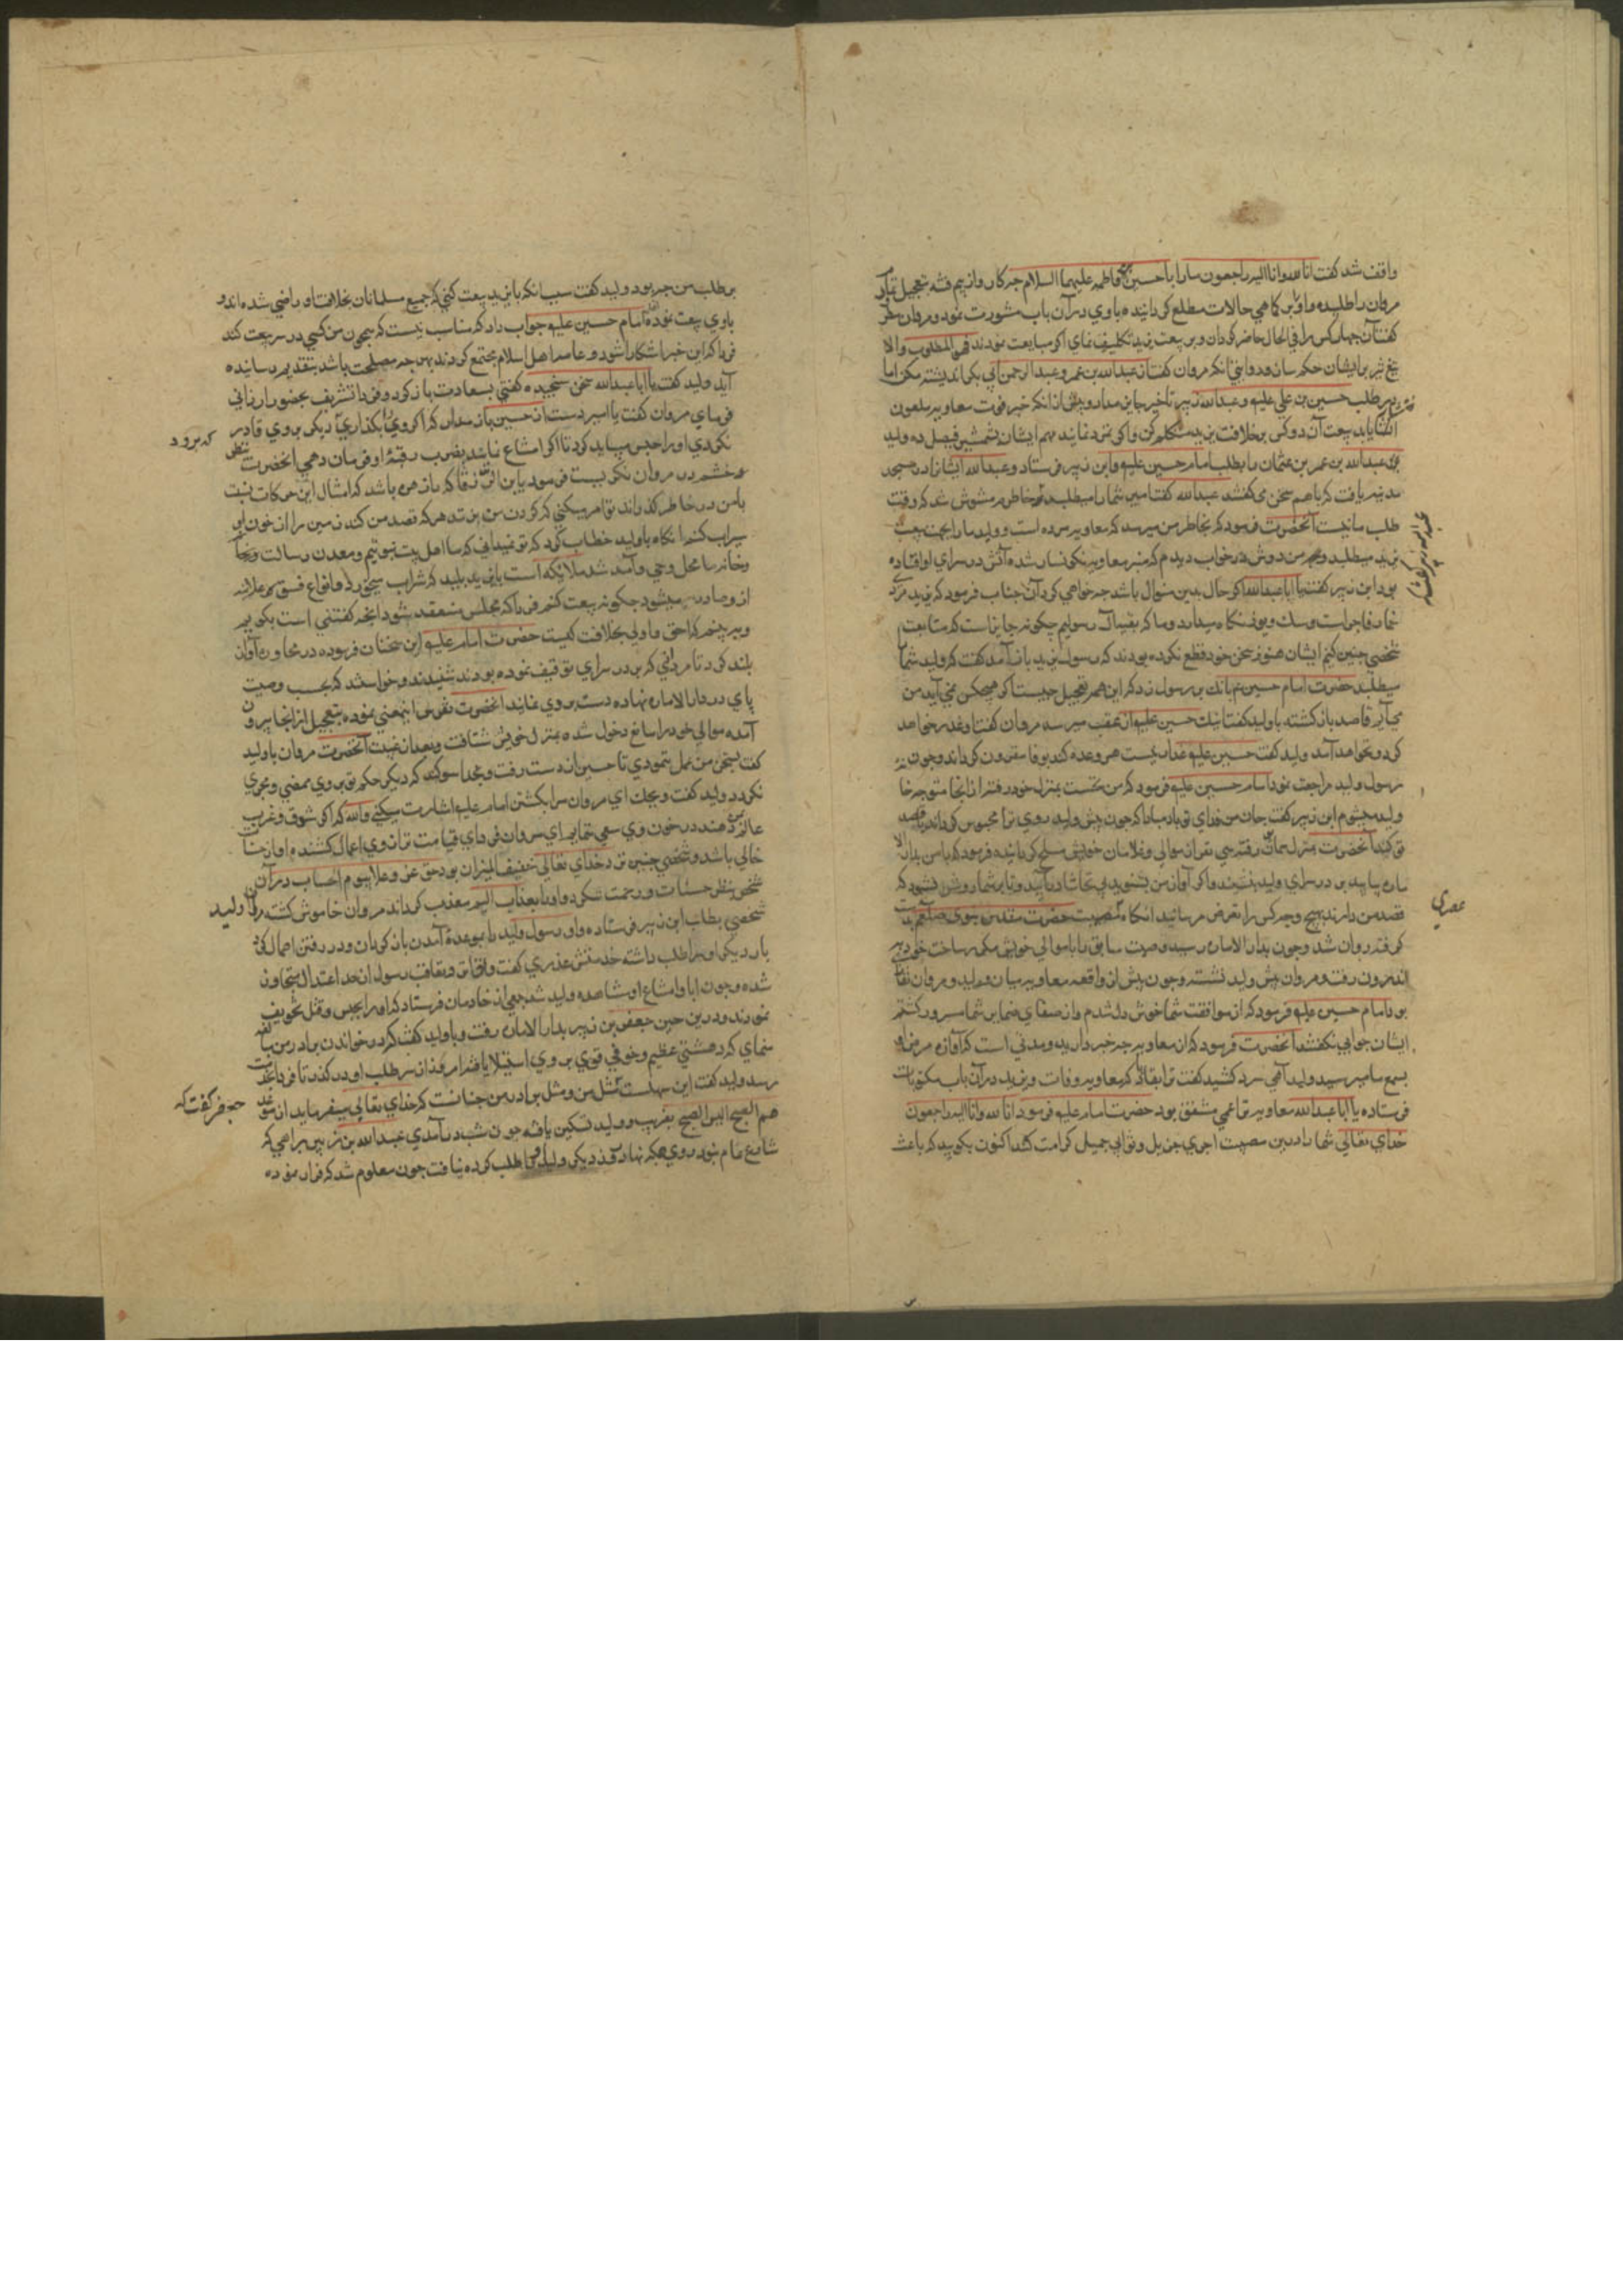 واقف شد کفت انا لله وانا الیه راجعون مارا با حسین فاطمه علیهما السلام چه کار واز بیم فتنه بتعجیل تمام
مروان را طلبیده واو را بر کماهی حالات مطلع کردانیده باوی در آن باب مشورت نمود ومروان
کفت آن چهار کس را فی الحال حاضر کردان وبر بیعت یزید تکلیف نمای اکر مبایعت نمودند فهو المطلوب والا
تیغ تیز بر ایشان حکم سازد وروایتی انکه مروان کفت از عبدالله بن عمر و عبدالرحمن ابی بکر اندیشه مکن اما
در طلب حسین بن علی علیه وعبدالله زبیر تاخیر جایز مدار وپیش از انکه خبر فوت معاویه ملعون
انتشار یابد بیعت آن دو کس بخلافت یزید مستحکم کن واکر تمرد نمایند مهم ایشان بشمشیر فیصل ده ولید
عبدالله بن عمر بن عثمان را بطلب امام حسین علیه وابن زبیر فرستاد وعبدالله ایشانرا در مسجد
مدینه یافت که باهم سخن می کفتند عبدالله کفت امیر شما را میطلبد خاطر مشوش شد که وقت
طلب ما نیست آنحضرت فرمود که بخاطر من میرسد که معاویه مرده است وولید ما را بجهت بیعت
یزید میطلبد ومن دوش در خواب دیدم که منبر معاویه نکونسار شده وآتش در سرای او افتاده
بود ابن زبیر کفت یا ابا عبدالله اکر حال بدین منوال باشد چه خواهی کرد آن جناب فرمود که یزید مردی
خمار فاجر است وسک ویوز نکاه میدارد وما که بقیه آل رسولیم چکونه جایز است که متابعت
شخصی چنین کنیم ایشان هنوز سخن خود قطع نکرده بودند که رسول یزید باز آمد کفت که ولید شما
میطلبد حضرت امام حسین بانک بر رسول زد که این همه تعجیل چیست اکر هیچکس نمی آید من
می آیم قاصد باز کشته با ولید کفت اینک حسین علیه از عقب میرسد مروان کفت او غدر خواهد
کرد ونخواهد آمد ولید کفت حسین علیه غدار نیست هر وعده کند بوفا مقرون کرداند وچون
رسول ولید مراجعت نمود امام حسین علیه فرمود که من نخست بمنزل خود رفته از انجا متوجه خانه
ولید میشوم ابن زبیر کفت جان من فدای تو باد مبادا که چون پیش ولید روی ترا محبوس کرداند یا قصد
تو کند آنحضرت بمنزل رفته سی نفر از موالی وغلامان خویش مسلح کردانیده فرمود که با من بدار الا
ماره بیایید بر در سرای ولید بنشیند واکر آواز من بشنوید بی تحاشا در آیید وتا بر شما روشن نشود که
قصد من دارند بهیچ وجه کس را تعرض مرسانید انکاه عصای حضرت مقدس نبوی صلعم بدست
کرفته روان شد وچون بدار الاماره رسید وصیت سابق را با موالی خویش مکرر ساخت خود به
اندرون رفت ومروان پیش ولید نشسته وچون پیش از واقعه معاویه میان ولید ومروان نفاق
بود امام حسین علیه فرمود که از موافقت شما خوش دل شدم واز صفای ضمایر شما مسرور کشتم
ایشان جوابی نکفتند آنحضرت فرمود که از معاویه چه خبر دارید ومدتی است که آوازه مرض او
بسمع ما میرسید ولید آهی سرد کشید کفت ترا بقا باد که معاویه وفات ویزید در آن باب مکتوبات
فرستاده یا ابا عبدالله معاویه ترا عمی مشفق بود حضرت امام علیه فرمود انا لله وانا الیه راجعون
خدای تعالی شما را درین مصیبت اجری جزیل وثوابی جمیل کرامت کند اکنون بکویید که باعث
عبدالله زبیر گفت
عصری
بر طلب من چه بود ولید کفت سبب انکه با یزید بیعت کنی که جمیع مسلمانان بخلافت او راضی شده اند و
باوی بیعت نموده امام حسین علیه جواب داد که مناسب نیست که همچون من کسی در سر بیعت کند
فردا که این خبر اشکارا شود وعامه اهل اسلام مجتمع کردند بهر چه مصلحت باشد بتقدیم رسانیده
آید ولید کفت یا ابا عبدالله سخن سنجیده کفتی بسعادت باز کرد وفردا تشریف حضور ارزانی
فرمای مروان کفت یا امیر دست از حسین باز مدار که اکر وی را بکذاری دیکر بر وی قادر
نکردی اورا حبس میباید کرد تا اکر امتناع نماید بضرب رقبه او فرمان دهی آنحضرت بنظر
وخشم در مروان نکریست فرمود یا بن الزرقا که را زهره باشد که امثال این حرکات نسبت
با من در خاطر کذراند تو امر میکنی که کردن من بزنند هر که قصد من کند زمین را از خون او
سیراب کنم انکاه با ولید خطاب کرد که تو نمیدانی که ما اهل بیت نبوتیم ومعدن رسالت
وخانه ما محل وحی وآمد شد ملائکه است با یزید پلید که شراب میخورد وانواع فسق علانیه
از وصادر میشود چکونه بیعت کنم فردا که مجلس منعقد شود انچه کفتنی است بکوییم
وببینم که احق واولی بخلافت کیست حضرت امام علیه این سخنان فرموده در محاوره آواز
بلند کرد تا مردانی که بر در سرای توقیف نموده بودند شنیدند وخواستند که بحسب وصیت
پای در دار الاماره نهاده دستبرد وی نمایند آنحضرت تفرس اینمعنی نموده بتعجیل از انجا بیرون
آمده موالی خود را مانع دخول شده بمنزل خویش شتافت وبعد از غیبت آنحضرت مروان با ولید
کفت بسخن من عمل ننمودی تا حسین از دست رفت وبخدا سوکند که دیکر حکم تو بر وی ممضی ومجری
نکردد ولید کفت ویحک ای مروان مرا بکشتن امام علیه اشارت میکنی والله که اکر شرق وغرب
عالم بمن دهند در خون وی سعی ننمایم ای مروان فردای قیامت ترازوی اعمال کشنده او از حسنات
خالی باشد وشخصی چنین نزد خدای تعالی خفیف المیزان بود حق عز وعلا یوم الحساب در آن
شخص بنظر حسنات ورحمت ننکرد واو را بعذاب الیم معذب کرداند مروان خاموش کشته ولید
شخصی بطلب ابن زبیر فرستاده واو رسول ولید را بوعده آمدن باز کردان ودر رفتن اهمال کرد
بار دیکر اورا طلب داشته خدمتش عذری کفت واتفاق وتعاقب رسولان از حد اعتدال متجاوز
شده وچون ابا وامتناع او مشاهده ولید شد جمعی از خادمان فرستاد که اورا بحبس وقتل تخویف
نمودند ودرین حین جعفر بن زبیر بدار الاماره رفت وبا ولید کفت که در خواندن برادر من مبالغه
منمای که دهشتی عظیم وخوفی قوی بر وی استیلا یافته امروز از سر طلب او در کذر تا فردا بخدمت
رسد ولید کفت این سهلست مثل من ومثل برادر من چنانست که خدای تعالی میفرماید ان موعد
هم الصبح الیس الصبح بقریب وولید تسکین یافته چون شب در آمد عبدالله بن زبیر براهی که
شارع عام نبود روی بمکه نهاد روز دیکر ولید اورا طلب کرده نیافت چون معلوم شد که فرار نموده
که برود
جعفر گفت که